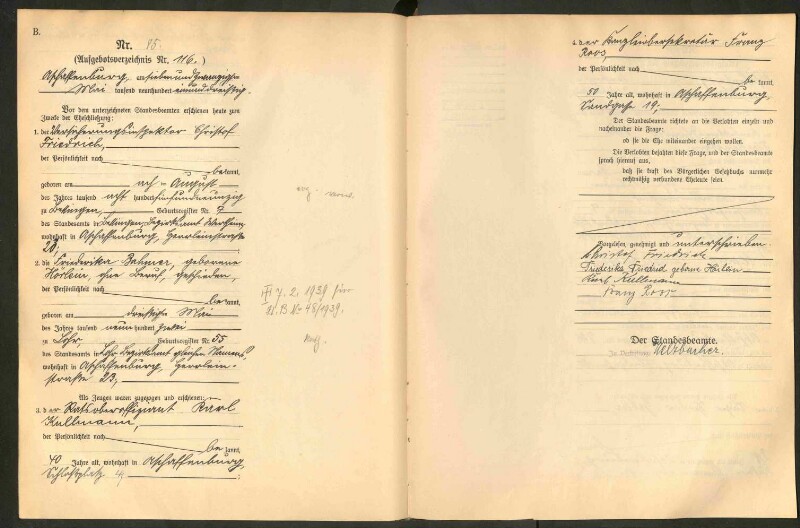 B.
Nr. 85.
(Aufgebotsverzeichnis Nr. 116.)
Aschaffenburg, am siebenundzwanzigsten
Mai tausend neunhundert einunddreißig.
Vor dem unterzeichneten Standesbeamten erschienen heute zum
Zwecke der Eheschließung:
1. der Versicherungsinspektor Christof
Friedrich,
der Persönlichkeit nach
bekannt,
geboren am acht August
des Jahres tausend acht hundertfünfundneunzig
zu , Geburtsregister Nr. 7
des Standesamts in Bezirksamt
wohnhaft in Aschaffenburg, Herrleinstraße
20;
2. die Friederika Behmer, geborene
Hörlein, ohne Beruf, geschieden,
der Persönlichkeit nach
bekannt,
geboren am dreißig Mai
des Jahres tausend neunhundert zwei
zu Lohr, Geburtsregister Nr. 55
des Standesamts in Lohr, Bezirksamt gleichen Namens,
wohnhaft in Aschaffenburg, Herrlein-
straße 23;
Als Zeugen waren zugezogen und erschienen:
3. der Ratsoberoffiziant Karl
Kullmann,
der Persönlichkeit nach
bekannt,
40 Jahre alt, wohnhaft in Aschaffenburg,
Schloßplatz 4;
7. 2. 1939
N. 48/1939.
4. der Kanzleiobersekretär Franz
Roos,
der Persönlichkeit nach
bekannt,
50 Jahre alt, wohnhaft in Aschaffenburg,
Sandgasse 19;
Der Standesbeamte richtete an die Verlobten einzeln und
nacheinander die Frage:
ob sie die Ehe miteinander eingehen wollen.
Die Verlobten bejahten diese Frage, und der Standesbeamte
sprach hierauf aus,
daß sie kraft des Bürgerlichen Gesetzbuchs nunmehr
rechtmäßig verbundene Eheleute seien.
Vorgelesen, genehmigt und unterschrieben.
Christof Friedrich
Friederika Friedrich geborene Hörlein
Karl Kullmann
Franz Roos
Der Standesbeamte.
In Vertretung: Welzbacher.